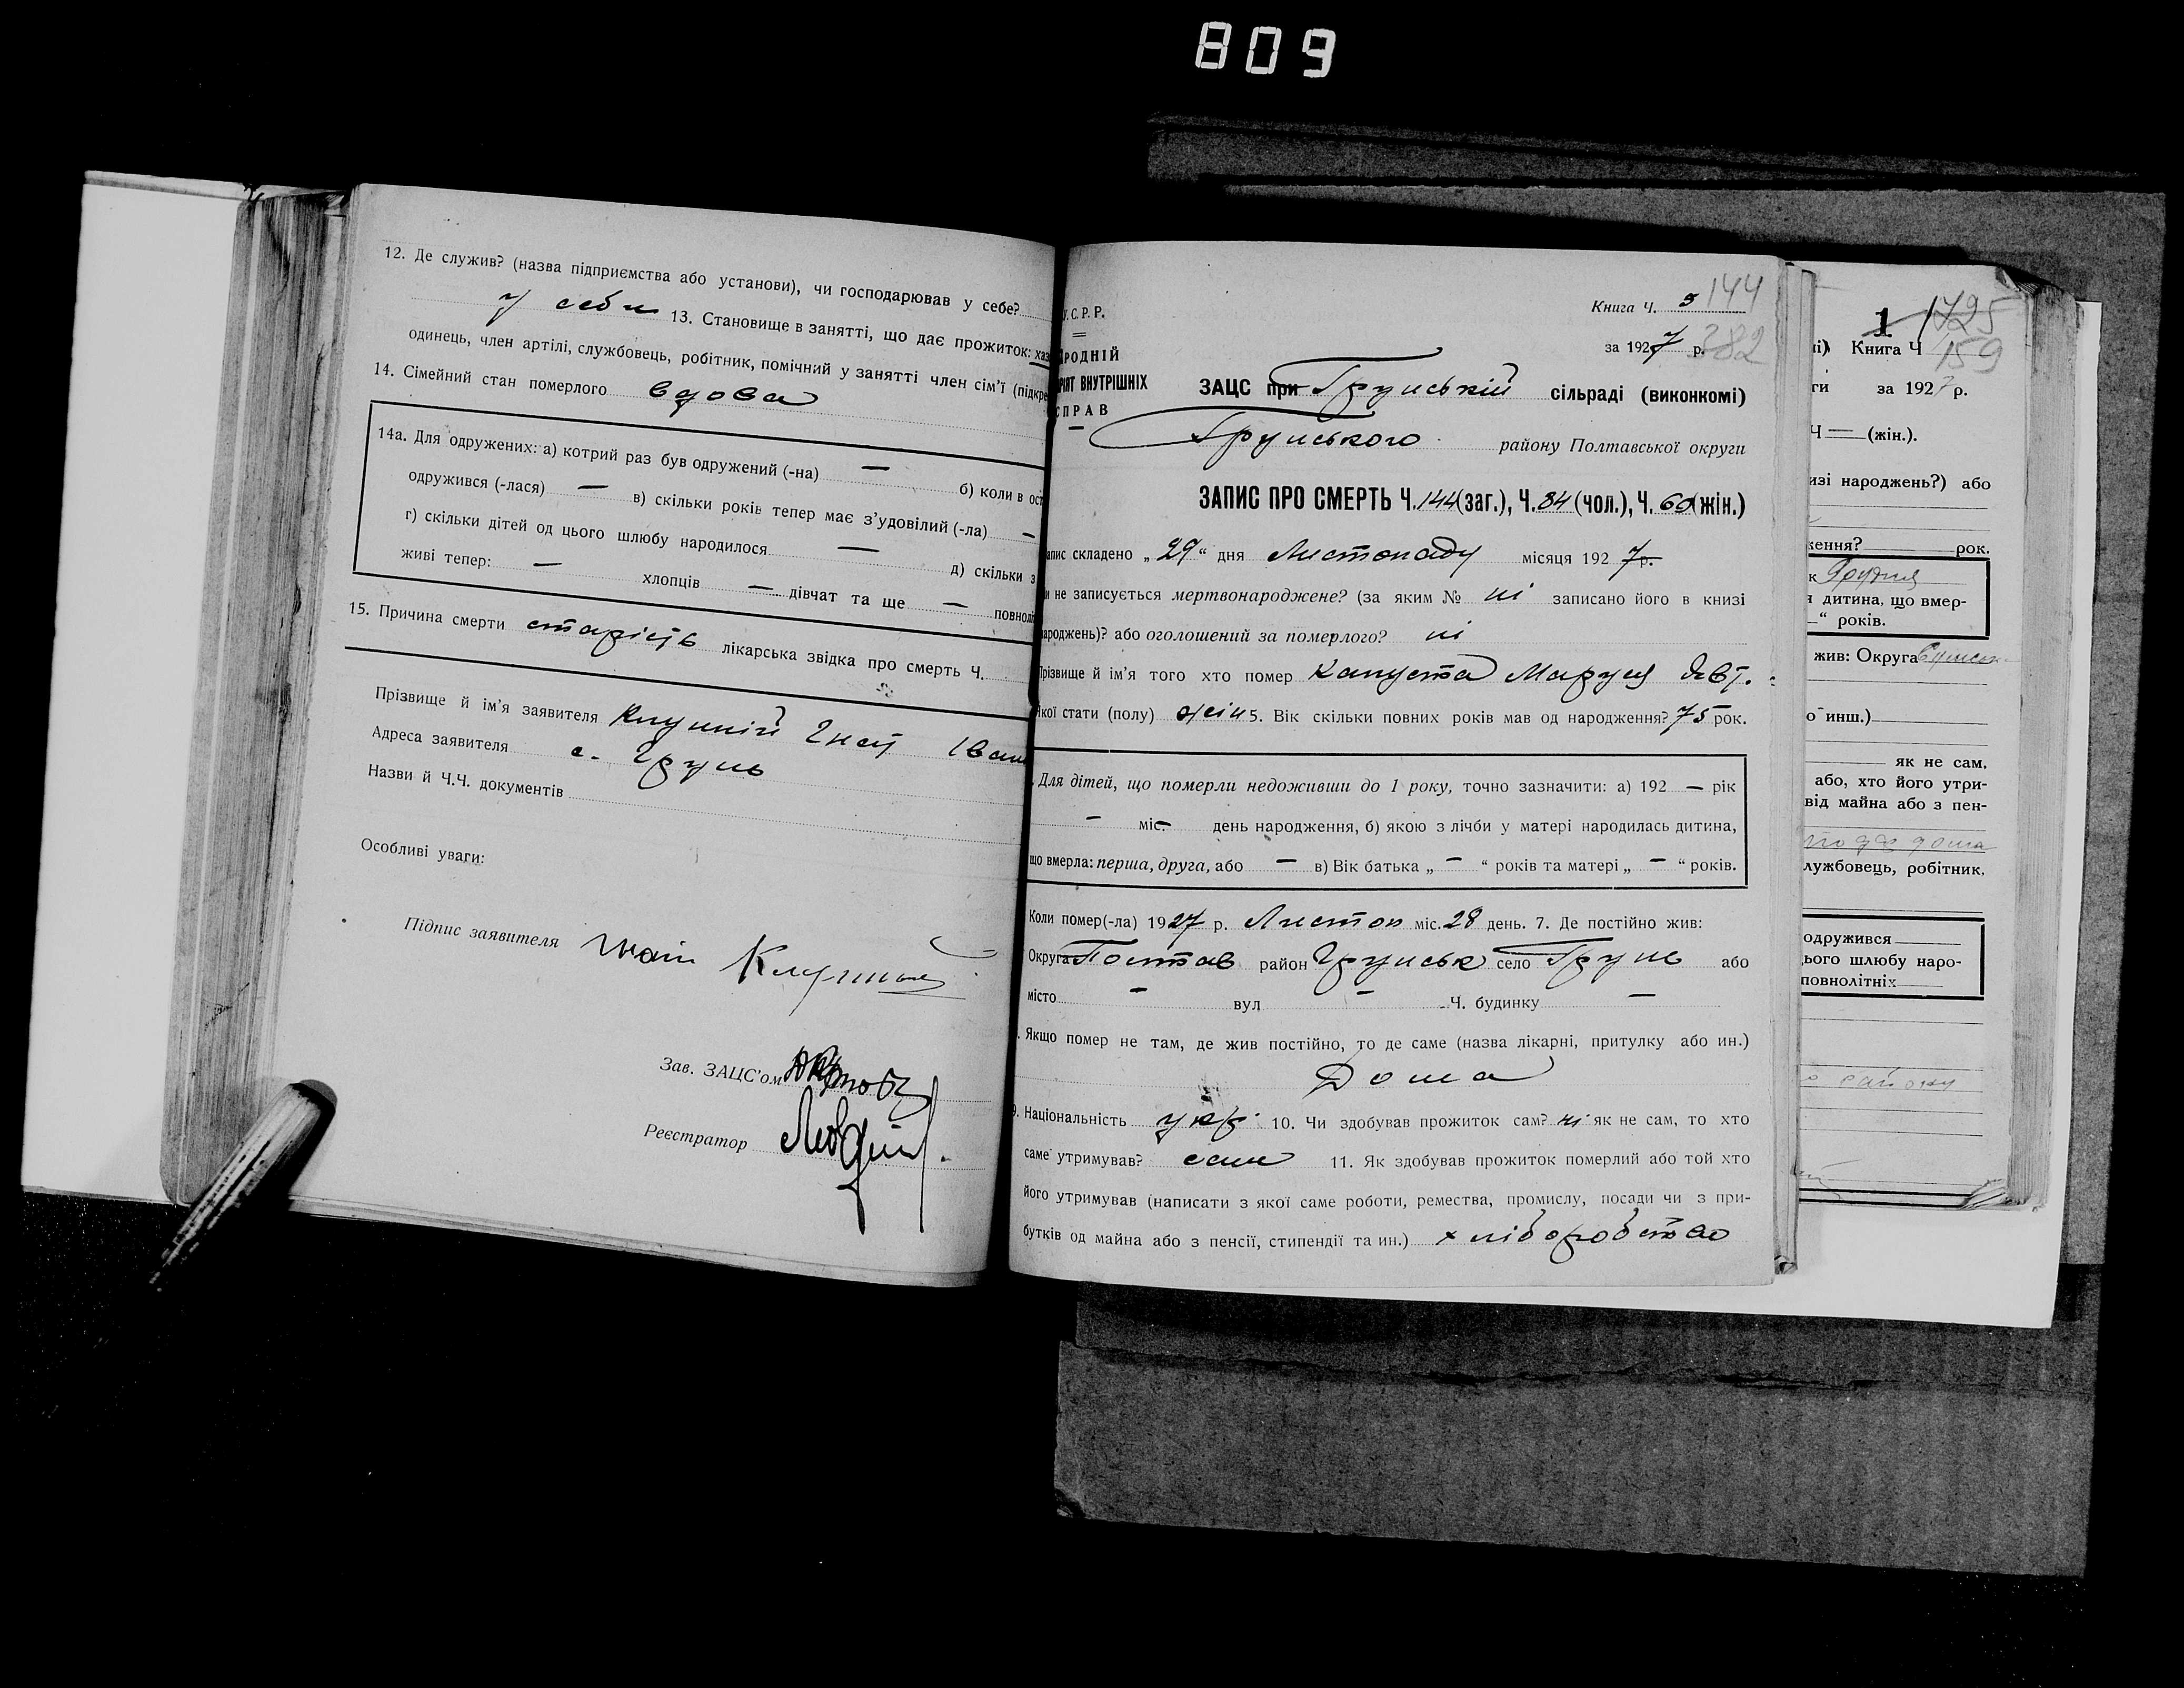 809
12. Де служив? (назва підприємства або установи), чи господарював у себе?
у себе 13. Становище в занятті, що дає прожиток: хаз
одинець, член артілі, службовець, робітник, помічний у занятті член сім'ї (підкре
14. Сімейний стан померлого вдова
14а. Для одружених: а) котрий раз був одружений (-на) — б) коли в ост
одружився (-лася) — в) скільки років тепер має з'удовілий (-ла) —
г) скільки дітей од цього шлюбу народилося — д) скільки з
живі тепер: — хлопців — дівчат та ще — повноліт
15. Причина смерти старість лікарська звідка про смерть Ч.
Прізвище й ім'я заявителя Гнат Іван
Адреса заявителя с. Грунь
Назви й Ч.Ч. документів
Особливі уваги:
Підпис заявителя
Зав. ЗАЦС'ом
Реєстратор
У.С.Р.Р.
РОДНІЙ
РІЯТ ВНУТРІШНІХ
СПРАВ
Книга Ч. 144
за 1927 р. 382
ЗАЦС при Грунській сільраді (виконкомі)
Грунського району Полтавської округи
ЗАПИС ПРО СМЕРТЬ Ч. 144 (заг.), Ч. 84 (чол.), Ч. 60 (жін.)
апис складено „29" дня Листопаду місяця 1927р.
и не записується мертвонароджене? (за яким № ні записано його в книзі
народжень)? або оголошений за померлого? ні
Прізвище й ім'я того хто помер Капуста Маруся Явт.
якої стати (полу) жін 5. Вік скільки повних років мав од народження? 75 рок.
. Для дітей, що померли недоживши до 1 року, точно зазначити: а) 192 — рік
— міс. — день народження, б) якою з лічби у матері народилась дитина,
що вмерла: перша, друга, або — в) Вік батька „ — " років та матері „ — " років.
Коли помер(-ла) 1927 р. Листоп міс. 28 день. 7. Де постійно жив:
Округа Полтав район Грунськ село Грунь або
місто — вул — Ч. будинку —
. Якщо помер не там, де жив постійно, то де саме (назва лікарні, притулку або ин.)
Дома
9. Національність укр. 10. Чи здобував прожиток сам? ні як не сам, то хто
саме утримував? син 11. Як здобував прожиток померлий або той хто
його утримував (написати з якої саме роботи, ремества, промислу, посади чи з при-
бутків од майна або з пенсії, стипендії та ин.) хліборобство
1 1725
і) Книга Ч 159
ги за 1927 р.
Ч — (жін.).
изі народжень?) або
ження? рок.
к Грудня
я дитина, що вмер-
—" років.
жив: Округа Сумськ
о инш.)
як не сам,
або, хто його утри-
від майна або з пен-
лужбовець, робітник,
одружився
ього шлюбу наро-
повнолітніх
району